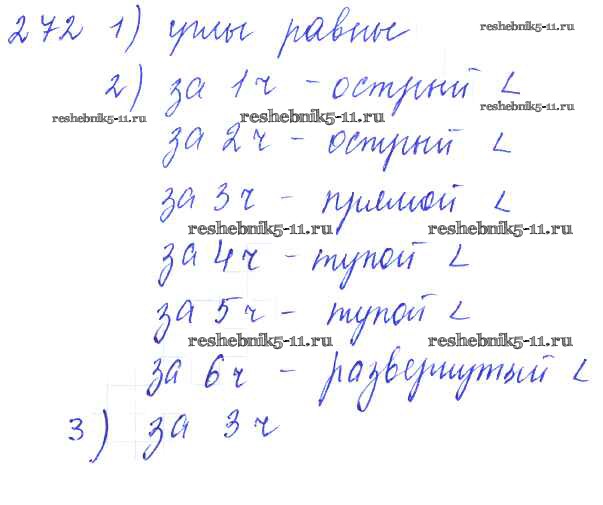 272 1) углы равные
reshebnik5-11.ru
2) за 1ч - острый ∠
reshebnik5-11.ru
reshebnik5-11.ru
reshebnik5-11.ru
за 2ч - острый ∠
за 3ч - прямой ∠
reshebnik5-11.ru reshebnik5-11.ru
за 4ч - тупой ∠
за 5ч - тупой ∠
reshebnik5-11.ru reshebnik5-11.ru
за 6ч - развернутый ∠
3) за 3ч